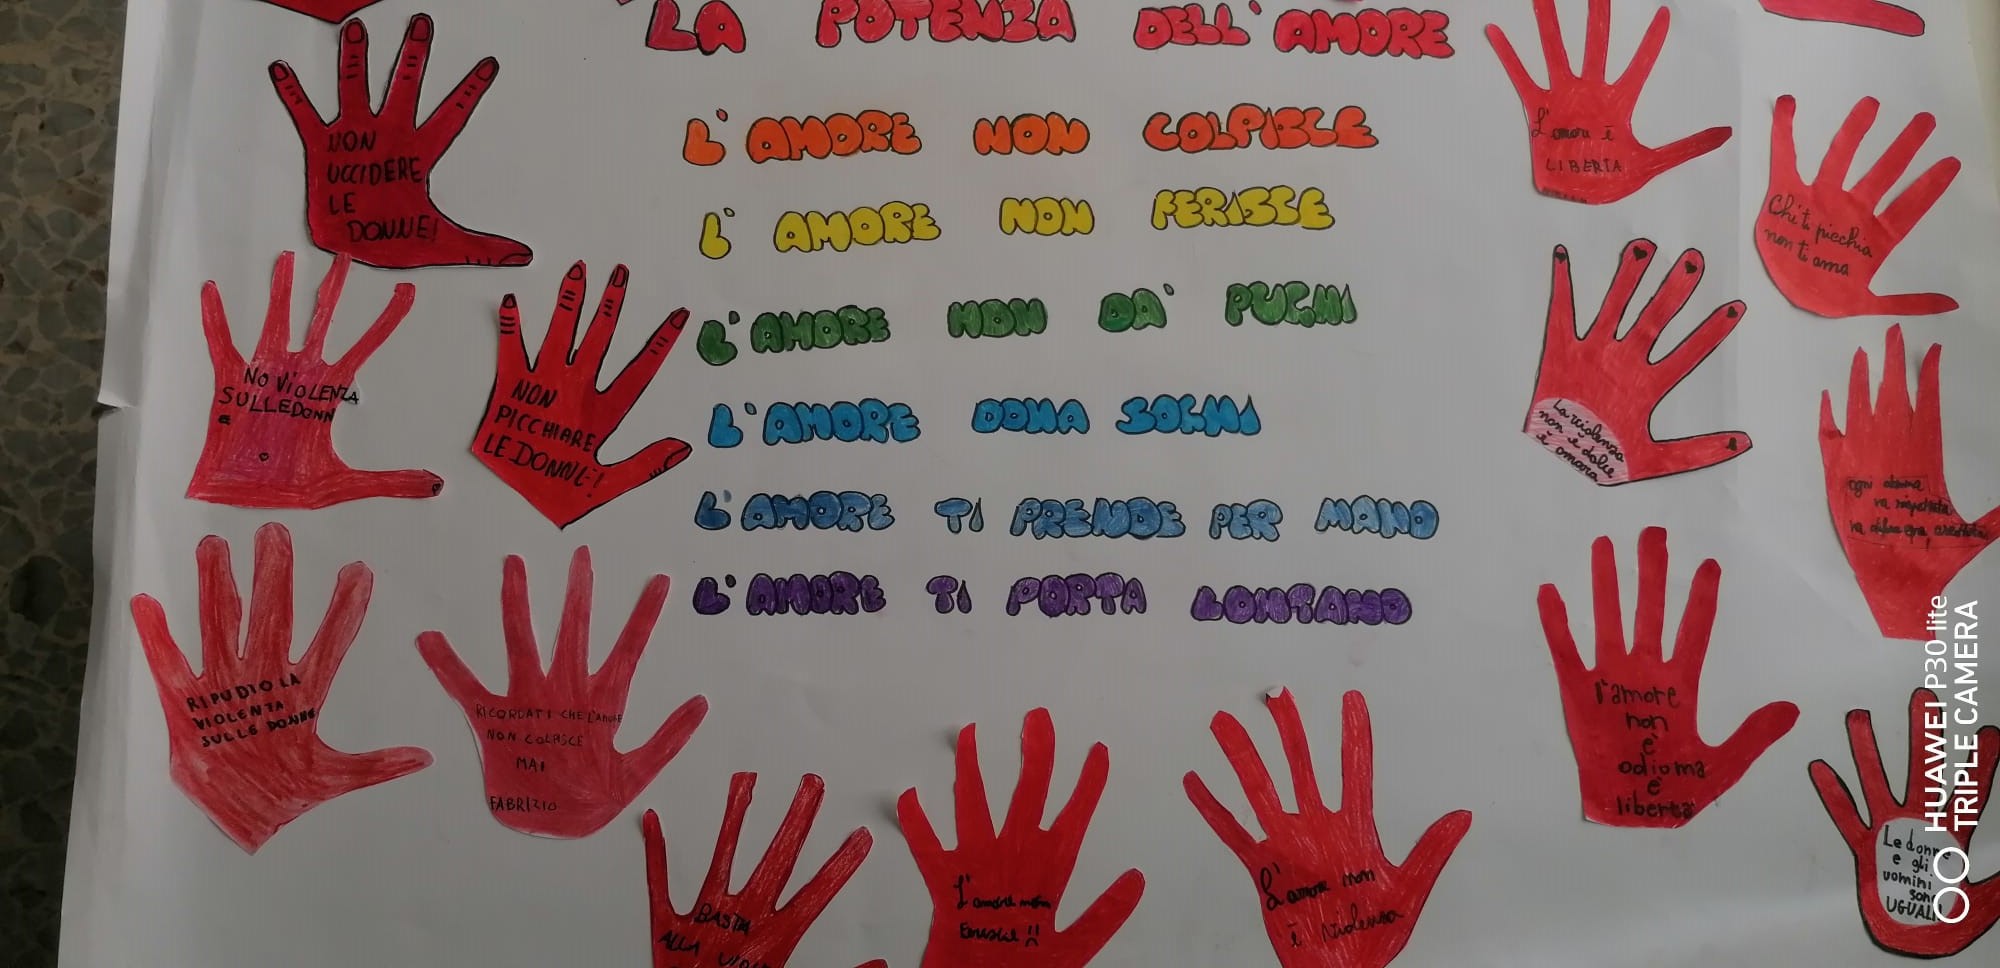 LA POTENZA DELL'AMORE
L'AMORE NON COLPISCE
L'AMORE NON FERISCE
L'AMORE NON DA' PUGNI
L'AMORE DONA SOGNI
L'AMORE TI PRENDE PER MANO
L'AMORE TI PORTA LONTANO
NON
UCCIDERE
LE
DONNE!
NO VIOLENZA
SULLE DONN
E
NON
PICCHIARE
LE DONNE!
RIPUDIO LA
VIOLENZA
SULLE DONNE
RICORDATI CHE L'AMORE
NON COLPISCE
MAI
FABRIZIO
BASTA
ALLA
L'amore non
è violenza
L'amore non
l'amore
non
è
odio ma
è
libertà
L'amore è
LIBERTA
Chi ti picchia
non ti ama
La violenza
non è dolce
è amara
ogni donna
va rispettata
va
Le donne
e gli
uomini
sono
UGUALI!
HUAWEI P30 lite
TRIPLE CAMERA